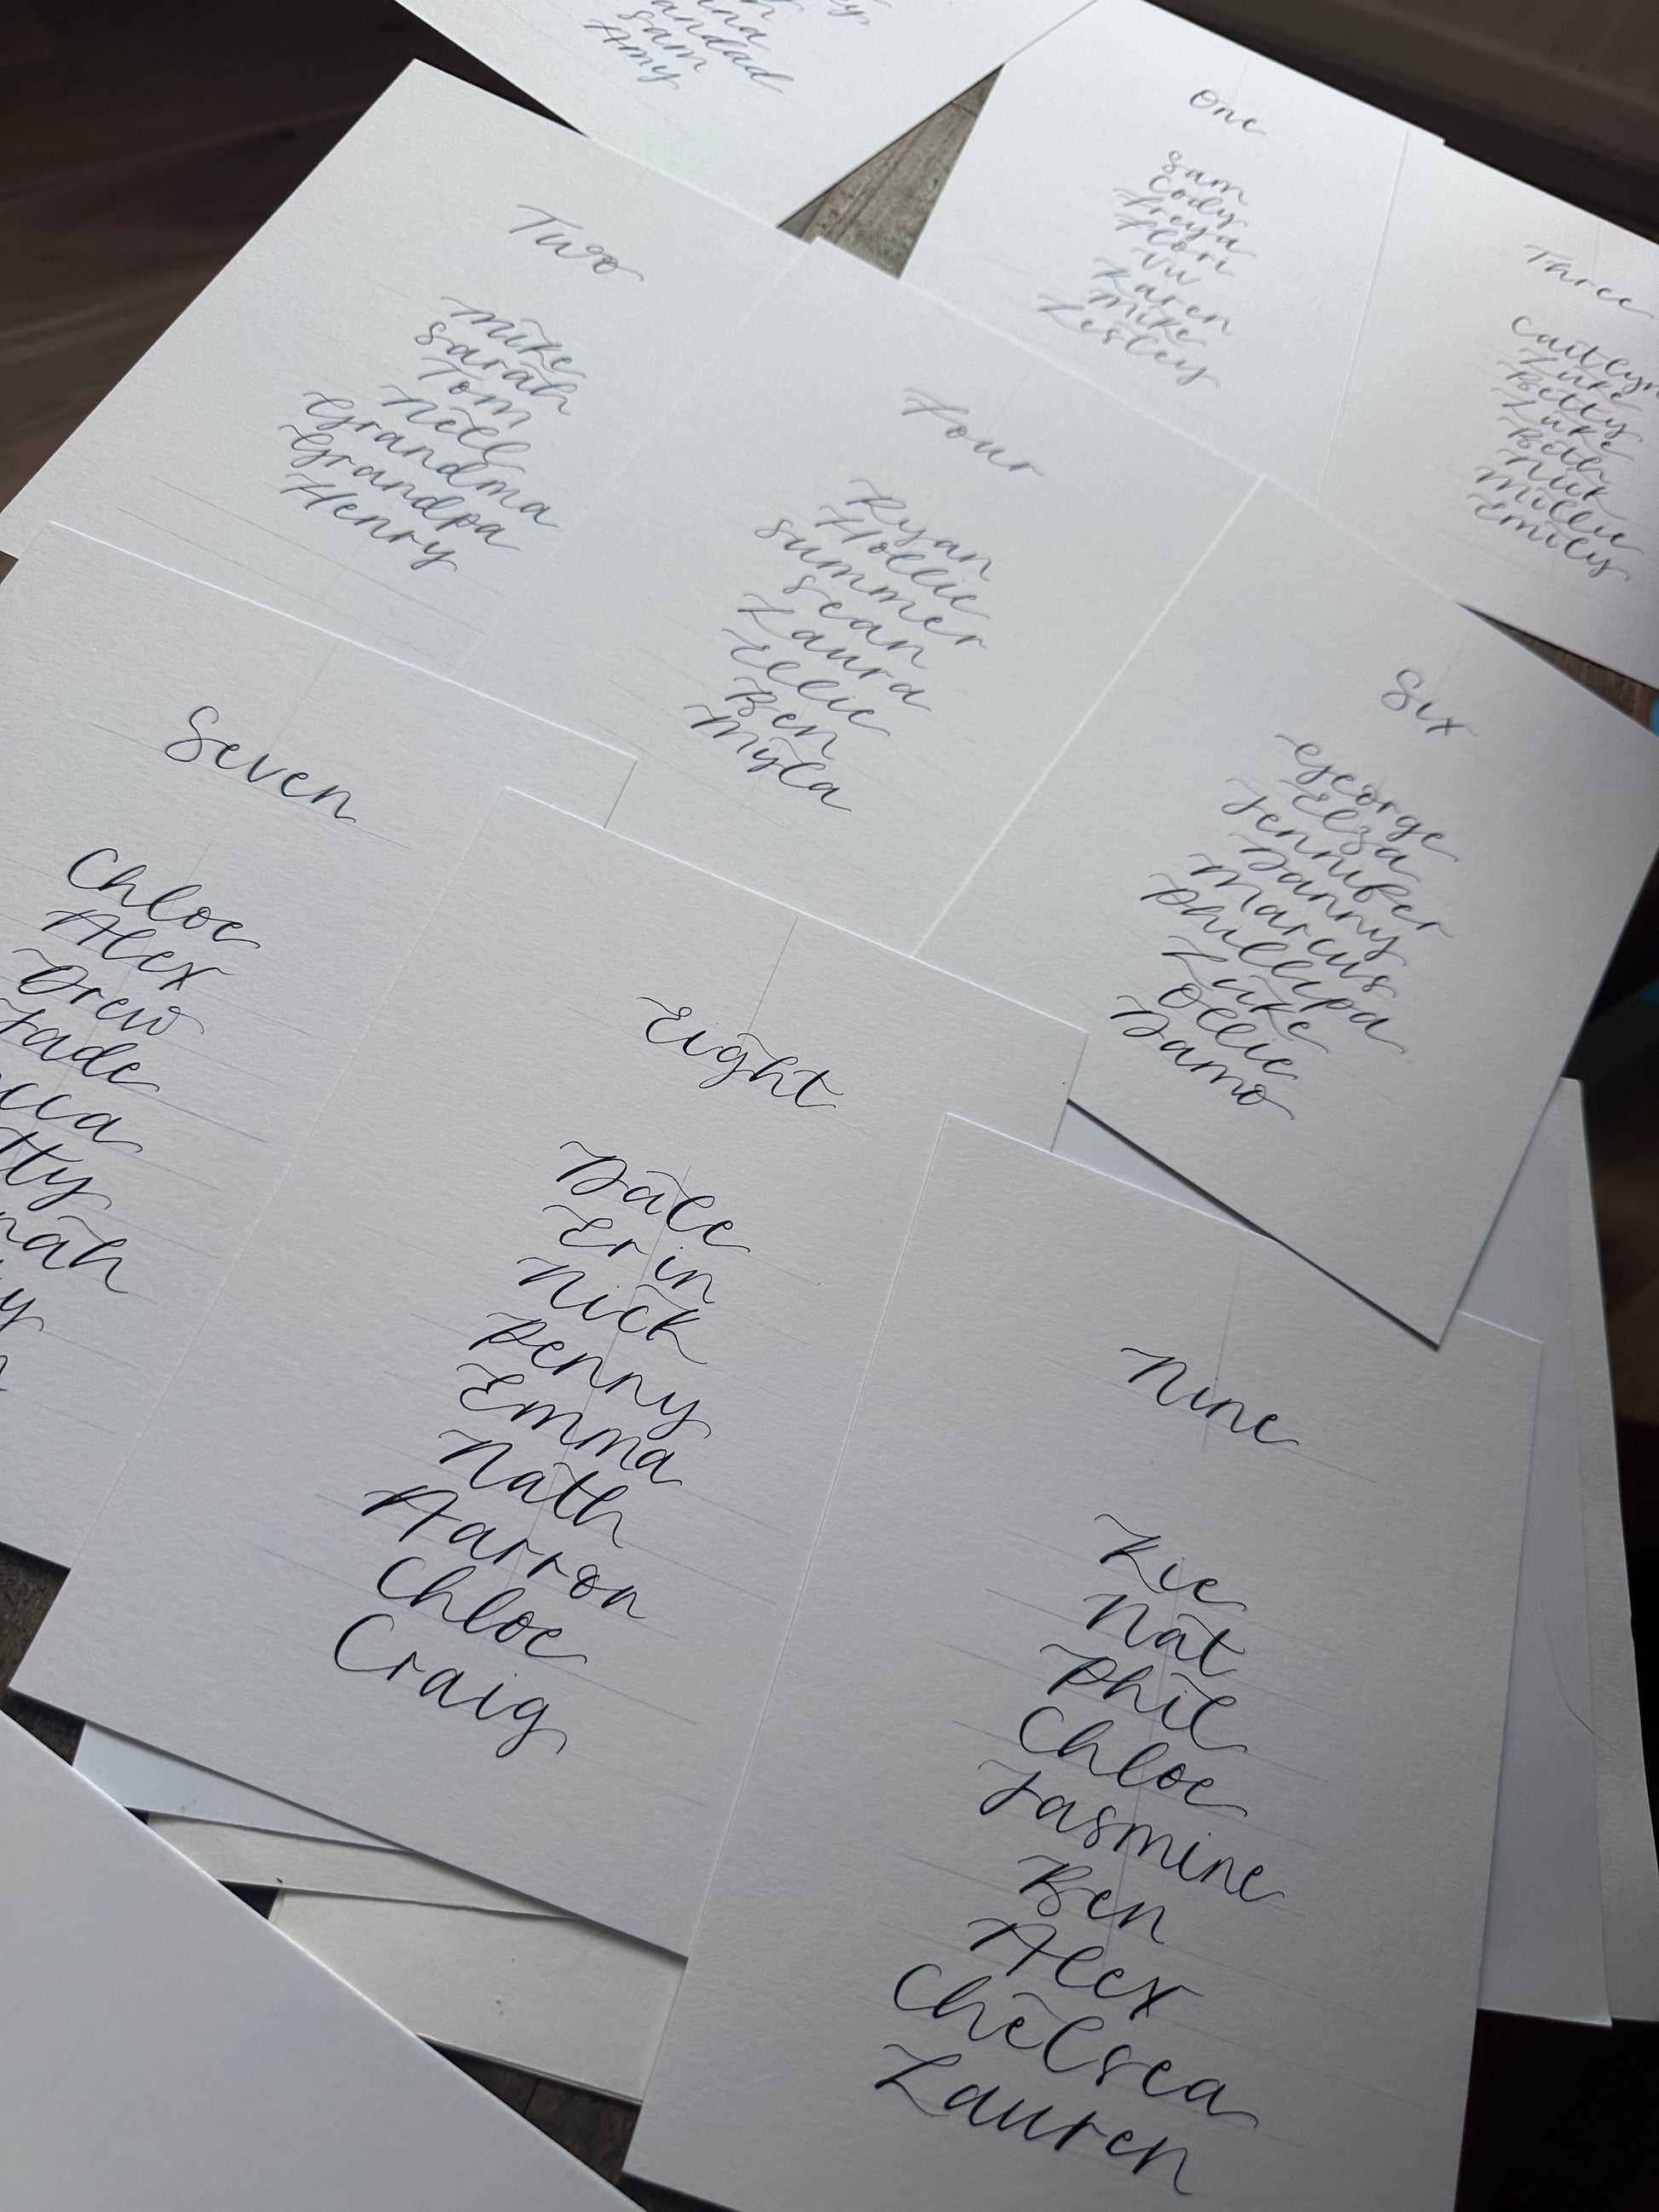 Sam
Amy
One
Sam
Cody
Freya
Flori
Viv
Karen
Mike
Lesley
Three
Caitlyn
Luke
Betty
Luke
Beth
Nick
Millie
Emily
Two
Mike
Sarah
Tom
Nell
Grandma
Grandpa
Henry
Four
Ryan
Hollie
Summer
Sean
Laura
Ellie
Ben
Myla
Six
George
Elza
Jennifer
Danny
Marcus
Phillipa
Luke
Ollie
Damo
Seven
Chloe
Alex
Drew
Jade
Eight
Dale
Erin
Nick
Penny
Emma
Nath
Aarron
Chloe
Craig
Nine
Kie
Nat
Phil
Chloe
Jasmine
Ben
Alex
Chelsea
Lauren